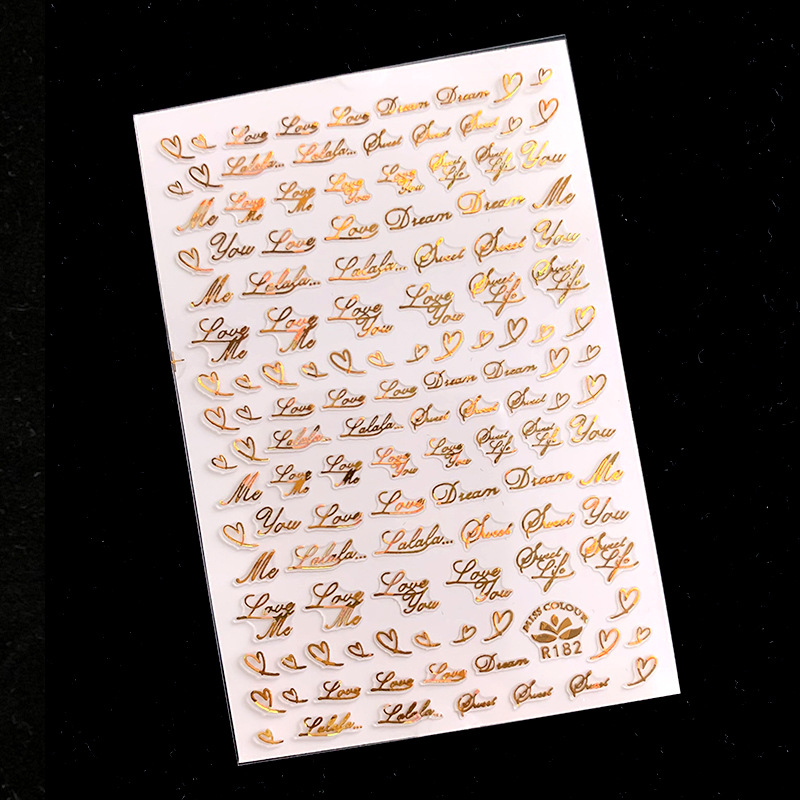 Love Love Love Dream Dream
Lalala... Lalala... Sweet Sweet Sweet
Me Love Me Love Me Love You Love You Sweet Life Sweet Life You
You Love Love Dream Dream Me
Me Lalala... Lalala... Sweet Sweet You
Love Me Love Me Love You Love You Sweet Life Sweet Life
Love Love Love Dream Dream
Lalala... Lalala... Sweet Sweet Sweet
Me Love Me Love Me Love You Love You Sweet Life Sweet Life You
You Love Love Dream Dream Me
Me Lalala... Lalala... Sweet Sweet You
Love Me Love Me Love You Love You Sweet Life Sweet Life
MISS COLOUR
R182
Love Love Love Dream
Lalala... Lalala... Sweet Sweet Sweet